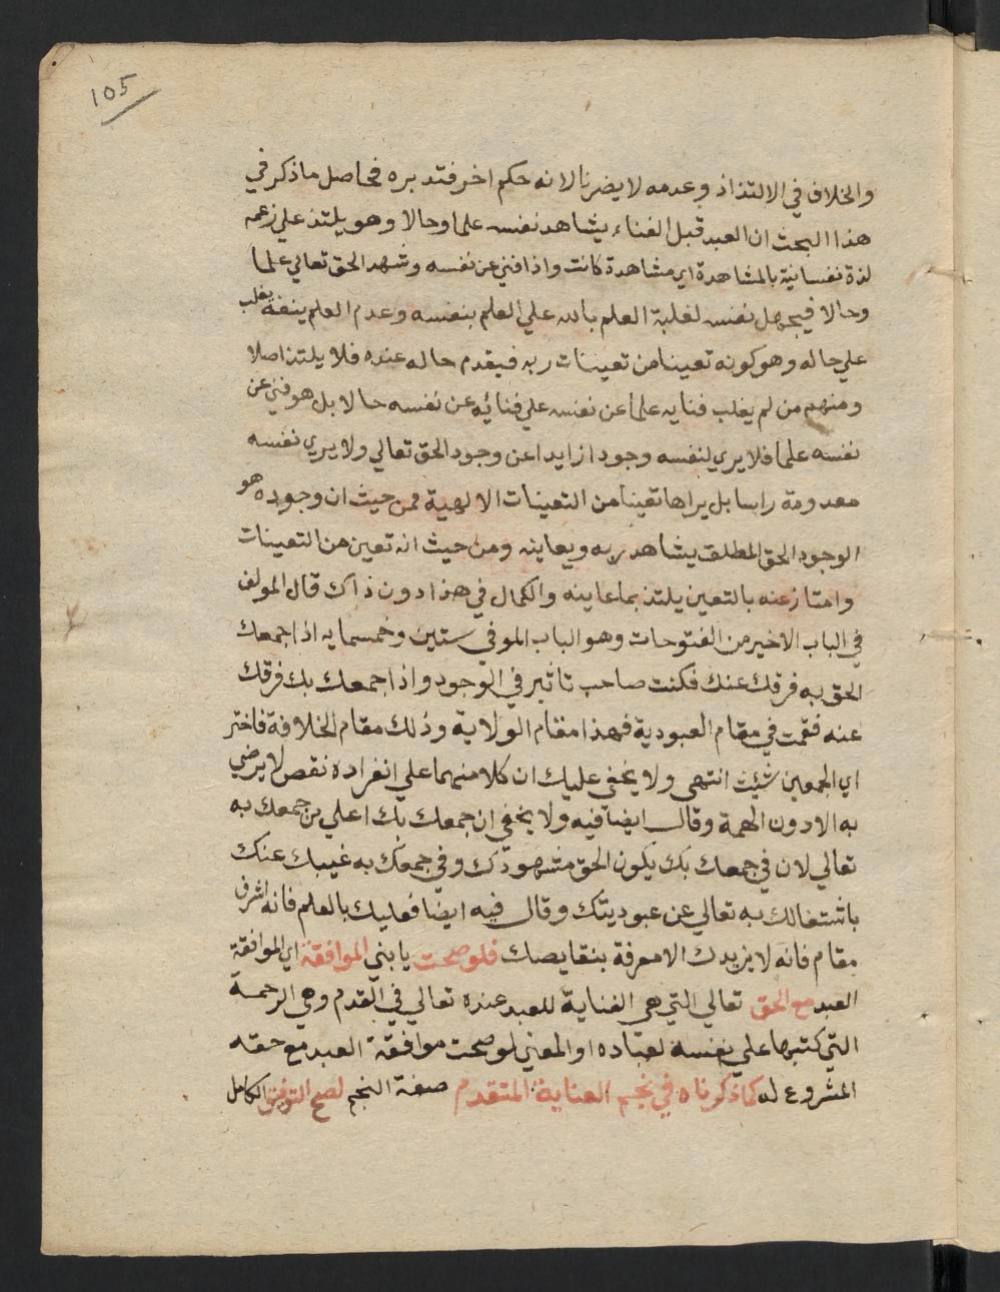 105
والخلاف في الالتذاذ وعدمه لا يضرنا لانه حكم اخر فتدبره فحاصل ما ذكر في
هذا البحث ان العبد قبل الفناء يشاهد نفسه علما وحالا وهو يلتذ علي زعمه
لذة نفسانية بالمشاهدة اي مشاهدة كانت واذا فني عن نفسه وشهد الحق تعالي علما
وحالا فيجهل نفسه لغلبة العلم بالله علي العلم بنفسه وعدم العلم بنفسه يغلب
علي حاله وهو كونه تعينا من تعينات ربه فيقدم حاله عنده فلا يلتذ اصلا
ومنهم من لم يغلب فنايه علما عن نفسه علي فنائه عن نفسه حالا بل هو فني عن
نفسه علما فلا يري لنفسه وجودا زايدا عن وجود الحق تعالي ولا يري نفسه
معدومة راسا بل يراها تعينا من التعينات الالهية فمن حيث ان وجوده هو
الوجود الحق المطلق يشاهد ربه ويعاينه ومن حيث انه تعين من التعينات
وامتاز عنه بالتعين يلتذ بما عاينه والكمال في هذا دون ذاك قال المولف
في الباب الاخير من الفتوحات وهو الباب الموفي ستين وخمسمايه اذا جمعك
الحق به فرقك عنك فكنت صاحب تاثير في الوجود واذا جمعك بك فرقك
عنه فقمت في مقام العبودية فهذا مقام الولاية وذلك مقام الخلافة فاختر
اي الجمعين شئت انتهي ولا يخفي عليك ان كلا منهما علي انفراده نقص لا يرضي
به الا دون الهمة وقال ايضا فيه ولا يخفي ان جمعك بك اعلي من جمعك به
تعالي لان في جمعك بك يكون الحق مشهودك وفي جمعك به غيبك عنك
باشتغالك به تعالي عن عبوديتك وقال فيه ايضا فعليك بالعلم فانه اشرف
مقام فانه لا يزيدك الا معرفة بنقايصك فلو صحت يا بني الموافقة اي الموافقة
العبد مع الحق تعالي التي هي العناية للعبد عنده تعالي في القدم وهي الرحمة
التي كتبها علي نفسه لعباده او المعني لو صحت موافقة العبد مع حقه
المشروع له كما ذكرناه في نجم العناية المتقدم صفة النجم لصح التوفيق الكامل